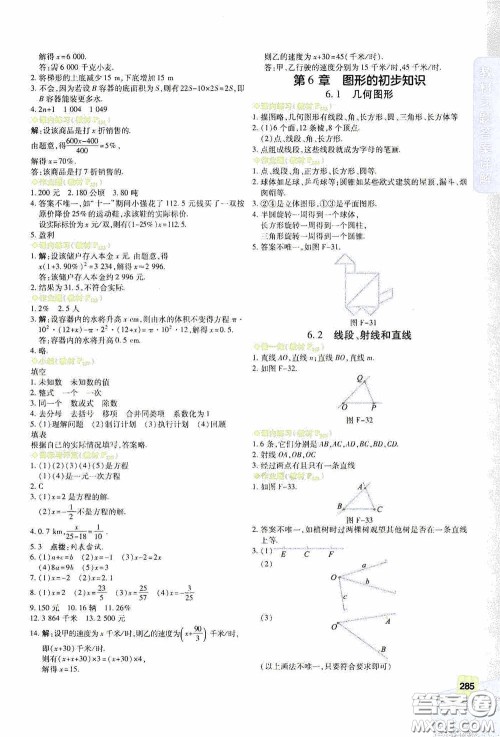 解得 x=6 000.
答:需要 6 000 千克小麦.
2. 将梯形的上底减少 15 m,下底增加 15 m,高不变.
3. 答案不唯一,如若设 B 容器的底面积为 S,则有 22S-10×2S=2S,即
B 容器能装更多水.
4. 2n+1 1 004 1 049
解:设该商品是打 x 折销售的.
由题意,得(600x-400)/400=5%,
解得 x=70%.
答:该商品是打 7 折销售的.
1. 200 元 2. 180 公顷 3. 80 吨
4. 答案不唯一,如"十一"期间小强花了 112.5 元钱买了一双按
原价降价 25%的运动鞋,求该鞋的实际标价.
设实际标价为 x 元,则(1-25%)x=112.5.
5. 盈利
1. 解:设该储户存入本金 x 元.由题意,得
x(1+3.90%×2)=3 234,解得 x≈2 996.
答:该储户存入本金约 2 996 元.
2. 结果为 31.5,不符合实际.
1. 2% 2. 5 人
3. 解:设容器内的水将升高 x cm,则由水的体积不变得方程 π·
10²·(12+x)-π·2²·(12+x)=π·10²·12,解得 x=0.5.
答:容器内的水将升高 0.5 cm.
4. 略.
填空
1. 未知数 未知数的值
2. 整式 一个 1
3. 同一个 数或式 除数
4. 去分母 去括号 移项 合并同类项 系数化为 1
5. (1)理解问题 (2)制订计划 (3)执行计划 (4)回顾
填表
根据自己的实际情况填写,答案略.
1. (1)(2)(3)(4)(5)是方程
(1)(4)是一元一次方程
2. C
3. (1)x=2 是方程的解.
(2)x=-1/2 不是方程的解.
4. 0.7 km, x/(25-18)=1/10.
5. 3 点拨:列表尝试.
6. (1)a+c=b (2)a=-b (3)x-2=2x
(4)8a=9b (5)x=4
8. (1)x=2 (2)x=23/5 (3)x=25/57 (4)x=3/2
9. 150 元 10. 16 辆 11. 26%
12. 3 864 千米 13. 2 500 元
14. 解:设甲的速度为 x 千米/时,则乙的速度为(x+90/3)千米/时,
即(x+30)千米/时.
则有(x+x+30)×3=(x+30)×4,
解得 x=15.
则乙的速度为 x+30=45(千米/时)
答:甲、乙行驶的速度分别为 15 千米/时、45 千米/时.
第 6 章 图形的初步知识
6.1 几何图形
1. 描图略,几何图形有线段、角、长方形、圆、三角形、长方体等
2. (1)6 个面,12 条棱,8 个顶点.
(2)点、线段、角、长方形.
3. 点组成线段,这些线段成为字母的笔画.
1. 点、线段、角、长方形、圆.
2. 球体如足球,乒乓球等;圆锥体如一些欧式建筑的屋顶、漏斗、圆
帽等.
3. ②④是立体图形,②③④是平面图形.
4. 半圆旋转一周得到一个球体,
长方形旋转一周得到一个圆柱,
三角形旋转一周得到一个圆锥.
5. 答案不唯一,如图 F-31.
图 F-31
6.2 线段、射线和直线
1. 直线 AO,直线 n;直线 BO,直线 m.
2. 如图 F-32.
O
P
Q
图 F-32
1. 6 条,它们分别是 AB,AC,AD,BC,BD,CD.
2. 射线 OA,OB,OC
3. 经过两点有且只有一条直线
1. 如图 F-33.
A
B
C
图 F-33
2. 答案不唯一,如植树时过两棵树观望其他树是否在一条直线
上等.
3. (1)
E C F
(2)
O
(3)
O
(以上画法不唯一,只要符合要求即可)
285
答案圈